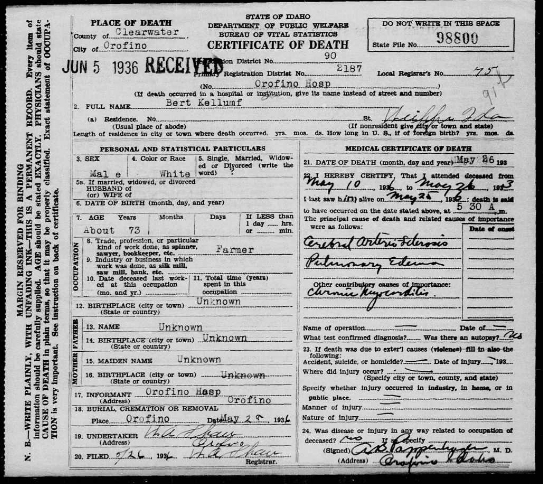 STATE OF IDAHO
DEPARTMENT OF PUBLIC WELFARE
BUREAU OF VITAL STATISTICS
CERTIFICATE OF DEATH
DO NOT WRITE IN THIS SPACE
State File No. 98800
PLACE OF DEATH
County of Clearwater
City of Orofino
JUN 5 1936 RECEIVED
District No. 90
Primary Registration District No. 2187
Local Registrar's No. 75
(No. Orofino Hosp
(If death occurred in a hospital or institution, give its name instead of street and number)
2. FULL NAME Bert Kellumf
(a) Residence. No. St.
(Usual place of abode) (If nonresident give city or town and state)
Length of residence in city or town where death occurred. yrs. mos. ds. How long in U. S., if of foreign birth? yrs. mos. ds.
MARGIN RESERVED FOR BINDING
N. B.—WRITE PLAINLY, WITH UNFADING INK—THIS IS A PERMANENT RECORD. Every item of
information should be carefully supplied. AGE should be stated EXACTLY. PHYSICIANS should state
CAUSE OF DEATH in plain terms, so that it may be properly classified. Exact statement of OCCUPA-
TION is very important. See instruction on back of certificate.
PERSONAL AND STATISTICAL PARTICULARS
3. SEX
Male
4. Color or Race
White
5. Single, Married, Widow-
ed or Divorced (write the
word)
5a. If married, widowed, or divorced
HUSBAND of
(or) WIFE of
6. DATE OF BIRTH (month, day, and year)
7. AGE Years Months Days If LESS than
1 day hrs.
or min.
About 73
OCCUPATION
8. Trade, profession, or particular
kind of work done, as spinner,
sawyer, bookkeeper, etc.
Farmer
9. Industry or business in which
work was done, as silk mill,
saw mill, bank, etc.
10. Date deceased last work-
ed at this occupation
(mo. and yr.)
11. Total time (years)
spent in this
occupation
12. BIRTHPLACE (city or town) Unknown
(State or country)
FATHER
13. NAME Unknown
14. BIRTHPLACE (city or town) Unknown
(State or country)
MOTHER
15. MAIDEN NAME Unknown
16. BIRTHPLACE (city or town) Unknown
(State or country)
17. INFORMANT Orofino Hosp
(Address) Orofino
18. BURIAL, CREMATION OR REMOVAL
Place Orofino Date May 1936
19. UNDERTAKER
(Address)
20. FILED 5/26 1936
Registrar.
MEDICAL CERTIFICATE OF DEATH
21. DATE OF DEATH (month, day, and year) May 26 193
22. I HEREBY CERTIFY, That I attended deceased from
May 10 1936 to May 26 193
I last saw him alive on May 26 193 death is said
to have occurred on the date stated above, at 5 30 A m.
The principal cause of death and related causes of importance
were as follows: Date of onset
Cerebral Arterio Sclerosis
Pulmonary Edema
Other contributory causes of importance:
Chronic Myocarditis
Name of operation Date of
What test confirmed diagnosis? Was there an autopsy? No
23. If death was due to external causes (violence) fill in also the
following:
Accident, suicide, or homicide? Date of injury 193
Where did injury occur?
(Specify city or town, county, and state)
Specify whether injury occurred in industry, in home, or in
public place.
Manner of injury
Nature of injury
24. Was disease or injury in any way related to occupation of
deceased? no If so, specify
(Signed) M. D.
(Address) Orofino Idaho